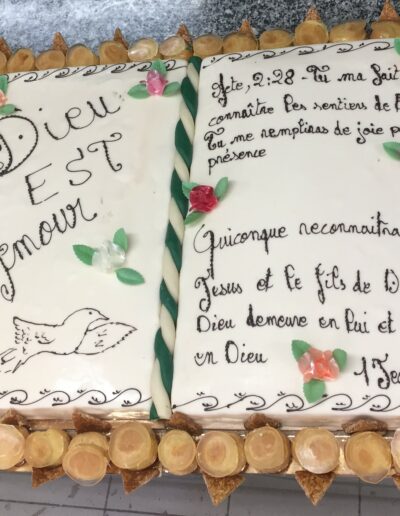 Dieu
EST
Amour
Acte, 2:28 - Tu ma fait
connaître les sentiers de
Tu me remptiras de joie
présence
Quiconque reconnaitra
Jesus et le fils de D
Dieu demeure en lui et
en Dieu
1 Jea